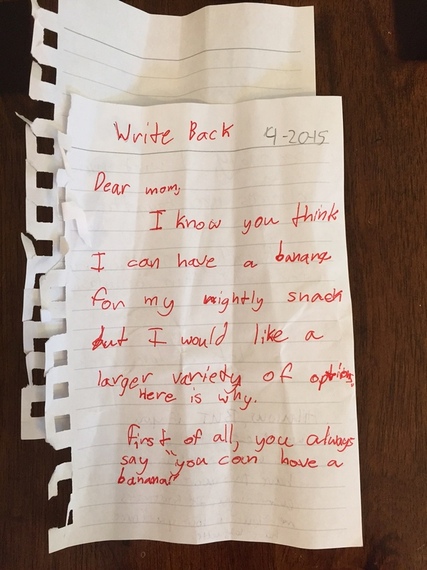 Write Back 9-20-15
Dear mom,
I know you think
I can have a banana
for my nightly snack
but I would like a
larger variety of options.
Here is why.
First of all, you always
say "you can have a
banana"